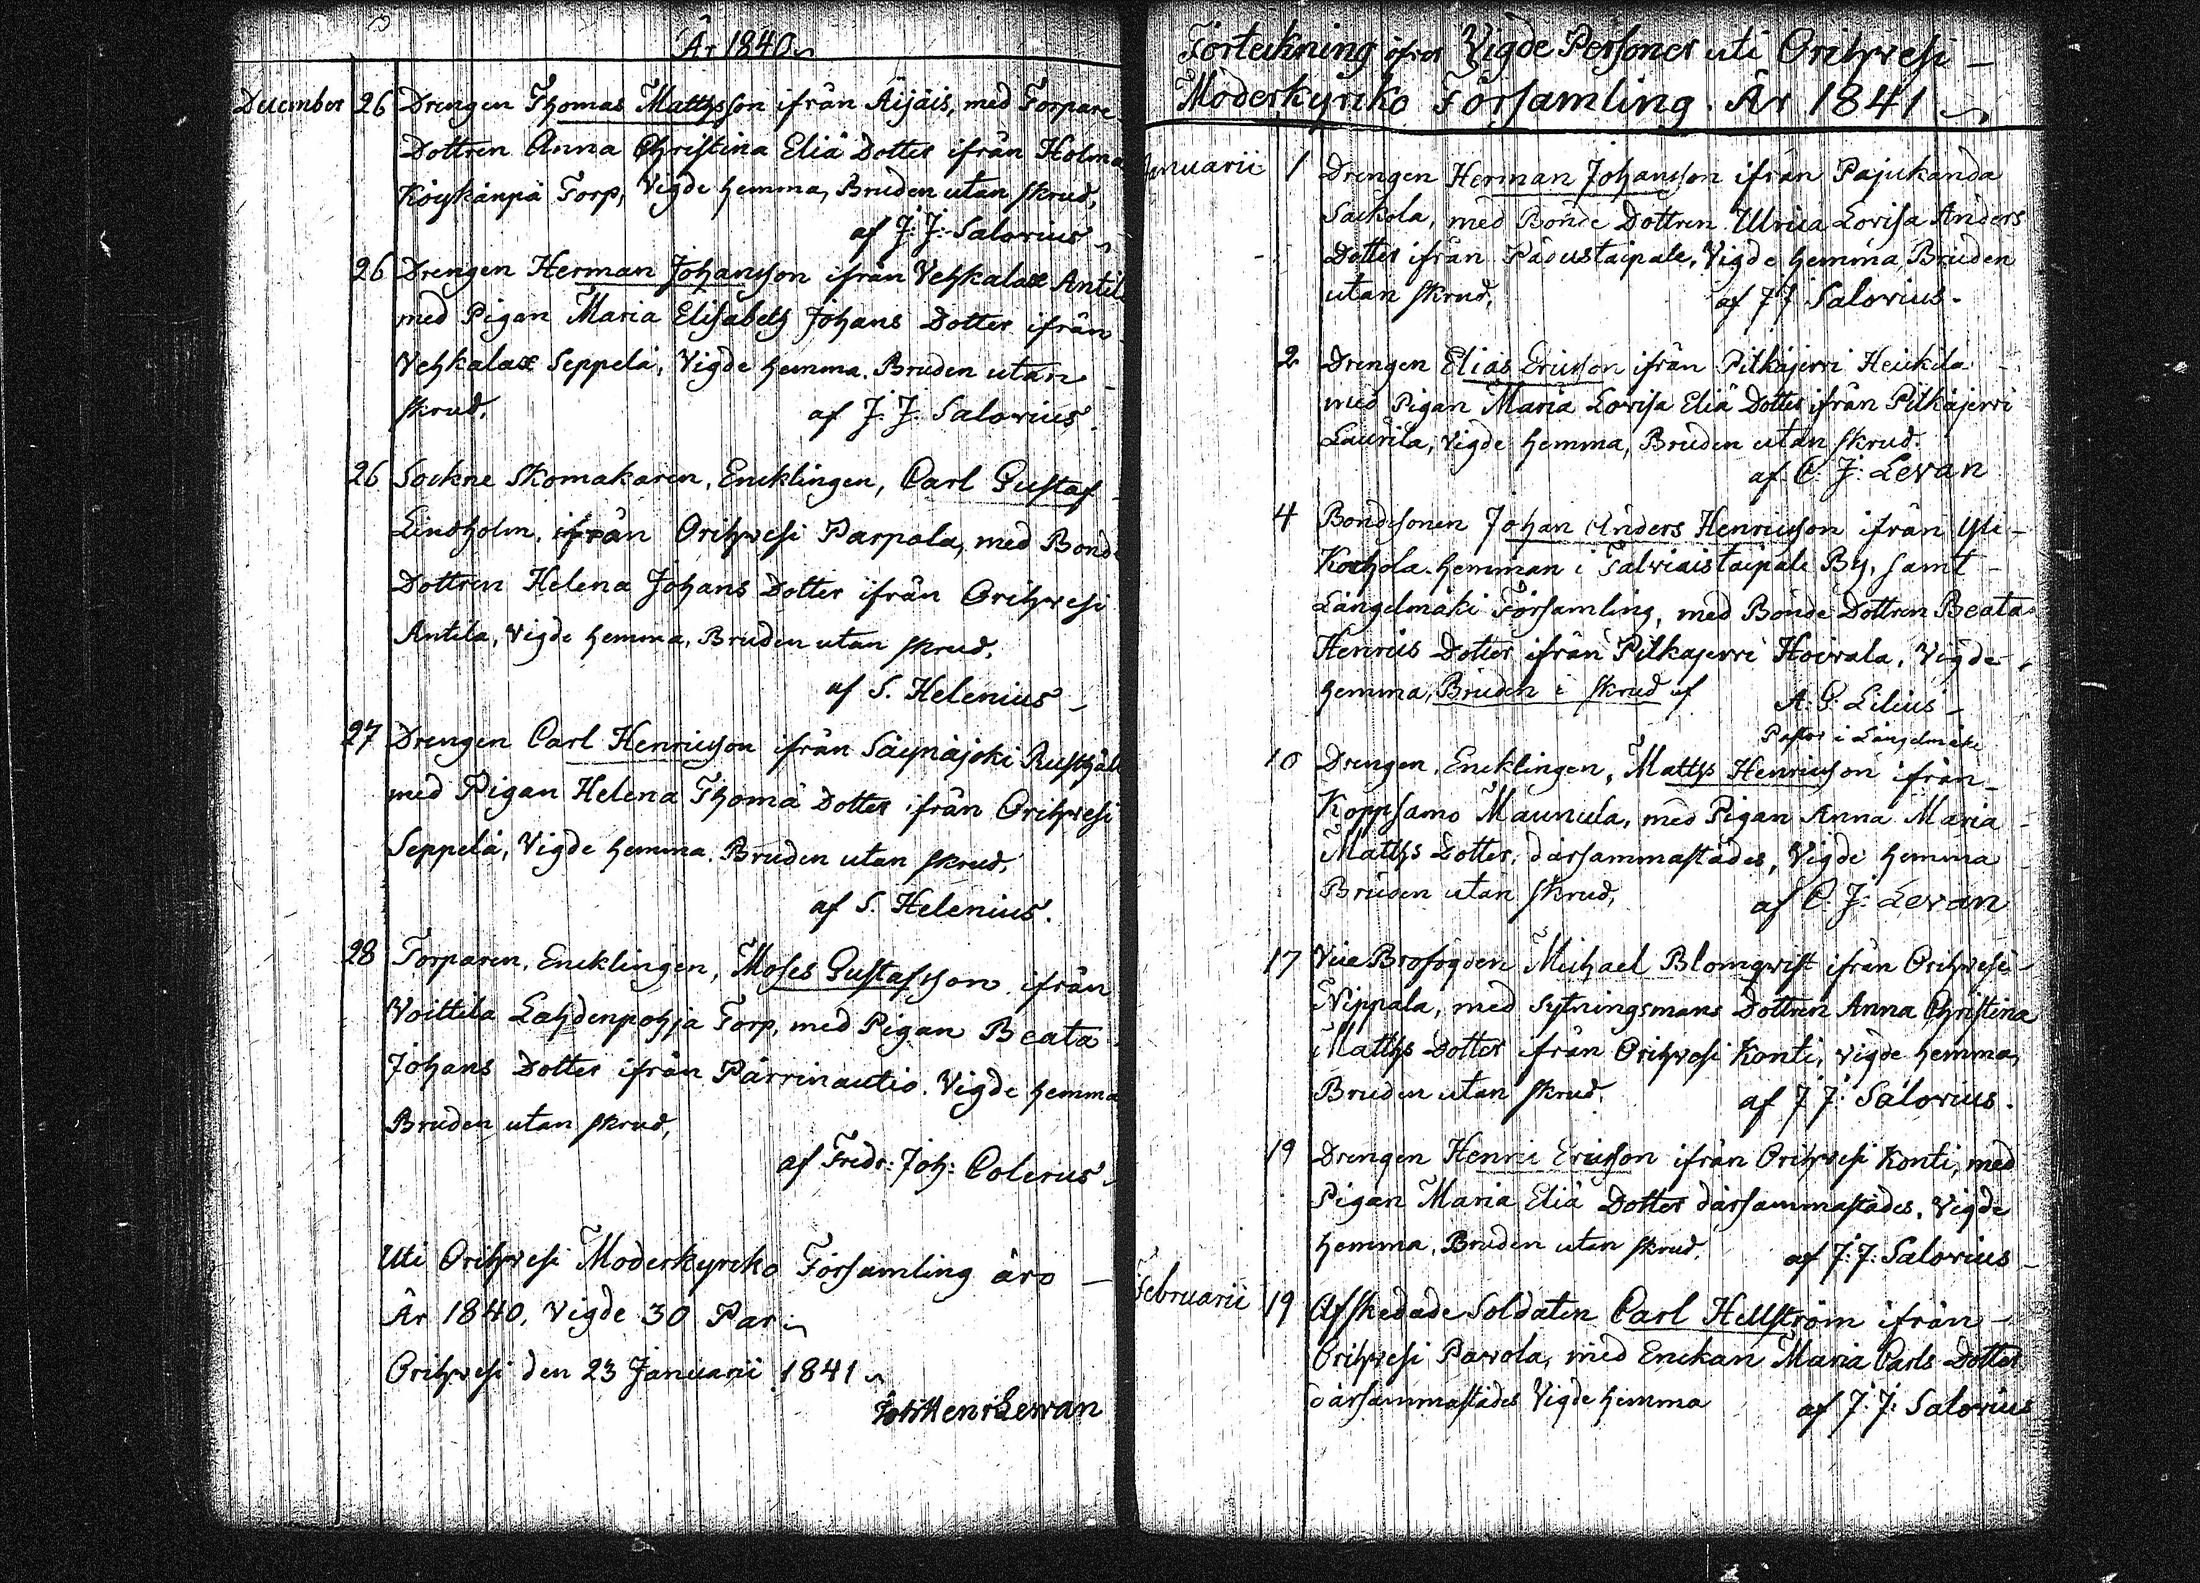 År 1840
December 26 Drengen Thomas Mattsson ifrån Äijäis, med Torpare
Dottren Anna Christina Eliä Dotter ifrån Holma
Köykänpä Torp, Vigde hemma, Bruden utan skrud,
af J: J: Salovius
26 Drengen Herman Johansson ifrån Vehkalax Antila
med Pigan Maria Elisabeth Johans Dotter ifrån
Vehkalax Seppelä, Vigde hemma. Bruden utan
skrud, af J: J: Salovius.
26 Sockne Skomakaren, Encklingen, Carl Gustaf
Lindholm, ifrån Orihvesi Parpala, med Bonde
Dottren Helena Johans Dotter ifrån Orihvesi
Antila, Vigde hemma, Bruden utan skrud,
af S. Helenius
27 Drengen Carl Henricsson ifrån Säynäjoki Rusthåll
med Pigan Helena Thomä Dotter ifrån Orihvesi
Seppelä, Vigde hemma. Bruden utan skrud,
af S. Helenius.
28 Torparen, Encklingen, Moses Gustafsson ifrån
Voittila Lahdenpohja Torp, med Pigan Beata
Johans Dotter ifrån Pärrinautio. Vigde hemma
Bruden utan skrud,
af Fredr: Joh: Colerus
Uti Orihvesi Moderkyrko Församling äro
År 1840, Vigde 30 Par
Orihvesi den 23 Januarii 1841
Joh Henr Lewan
Förteckning öfver Vigde Personer uti Orihvesi
Moderkyrko Församling. År 1841
Januarii 1 Drengen Herman Johansson ifrån Pajukanda
Sackola, med Bonde Dottren Ulrica Lovisa Anders
Dotter ifrån Padustaipale, Vigde hemma, Bruden
utan skrud, af J J Salovius.
2 Drengen Elias Ericsson ifrån Pitkäjervi Heickilä
med Pigan Maria Lovisa Eliä Dotter ifrån Pitkäjervi
Laurila, Vigde hemma, Bruden utan skrud.
af C. J: Levan
4 Bondesonen Johan Anders Henricsson ifrån Yli
Korhola hemman i Talviaistaipale By, samt
Längelmäki Församling, med Bonde Dottren Beata
Henrics Dotter ifrån Pitkäjervi Hoivala, Vigde
hemma, Bruden i skrud af A: G: Lilius
Pastor i Längelmäki
10 Drengen, Encklingen, Matths Henricsson ifrån
Koppsamo Maunula, med Pigan Anna Maria
Matths Dotter, därsammastädes, Vigde hemma
Bruden utan skrud, af C: J: Levan
17 Vice Brofogden Michael Blomqvist ifrån Orihvesi
Nippala, med sytningsmans Dottren Anna Christina
Matths Dotter ifrån Orihvesi Konti, vigde hemma,
Bruden utan skrud. af J J: Salovius.
19 Drengen Henric Ericsson ifrån Orihvesi Konti, med
Pigan Maria Eliä Dotter därsammastädes, Vigde
hemma, Bruden utan skrud. af J: J: Salovius
Februarii 19 Afskedade Soldaten Carl Hellström ifrån
Orihvesi Pavola, med Enckan Maria Carls Dotter
därsammastädes Vigde hemma af J: J: Salovius